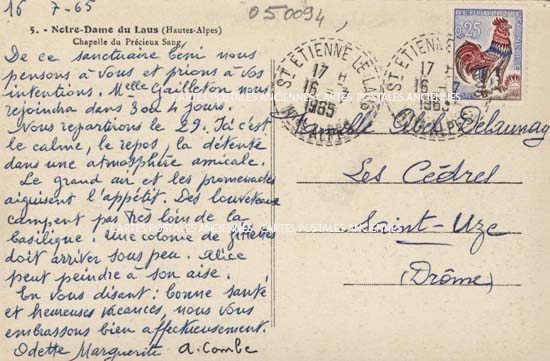 16 7-65
050094
5. - Notre-Dame du Laus (Hautes-Alpes)
Chapelle du Précieux Sang
De ce sanctuaire béni nous
pensons à vous et prions à vos
intentions. Melle Cailleton nous
rejoindra dans 3 ou 4 jours.
Nous repartirons le 29. Ici c'est
le calme, le repos, la détente
dans une atmosphère amicale.
Le grand air et les promenades
aiguisent l'appétit. Des louveteaux
campent pas très loin de la
basilique. Une colonie de fillettes
doit arriver sous peu. Alice
peut peindre à son aise.
En vous disant : bonne santé
et heureuses vacances, nous vous
embrassons bien affectueusement.
Odette Marguerite A. Combe
ST ETIENNE LE LAUS
17 H
16 -
1965
HAUTES ALPES
ST ETIENNE
17
16
1965
ALPES
REPUBLIQUE FRANCAISE
0,25
POSTES
Abel Debaunay
Les Cèdres
Saint-Uze
(Drôme)
CARTES POSTALES ANCIENNES CARTES POSTALES ANCIENNES